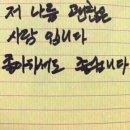 저 나름 괜찮은
사람 입니다
좋아하셔도 좋습니다